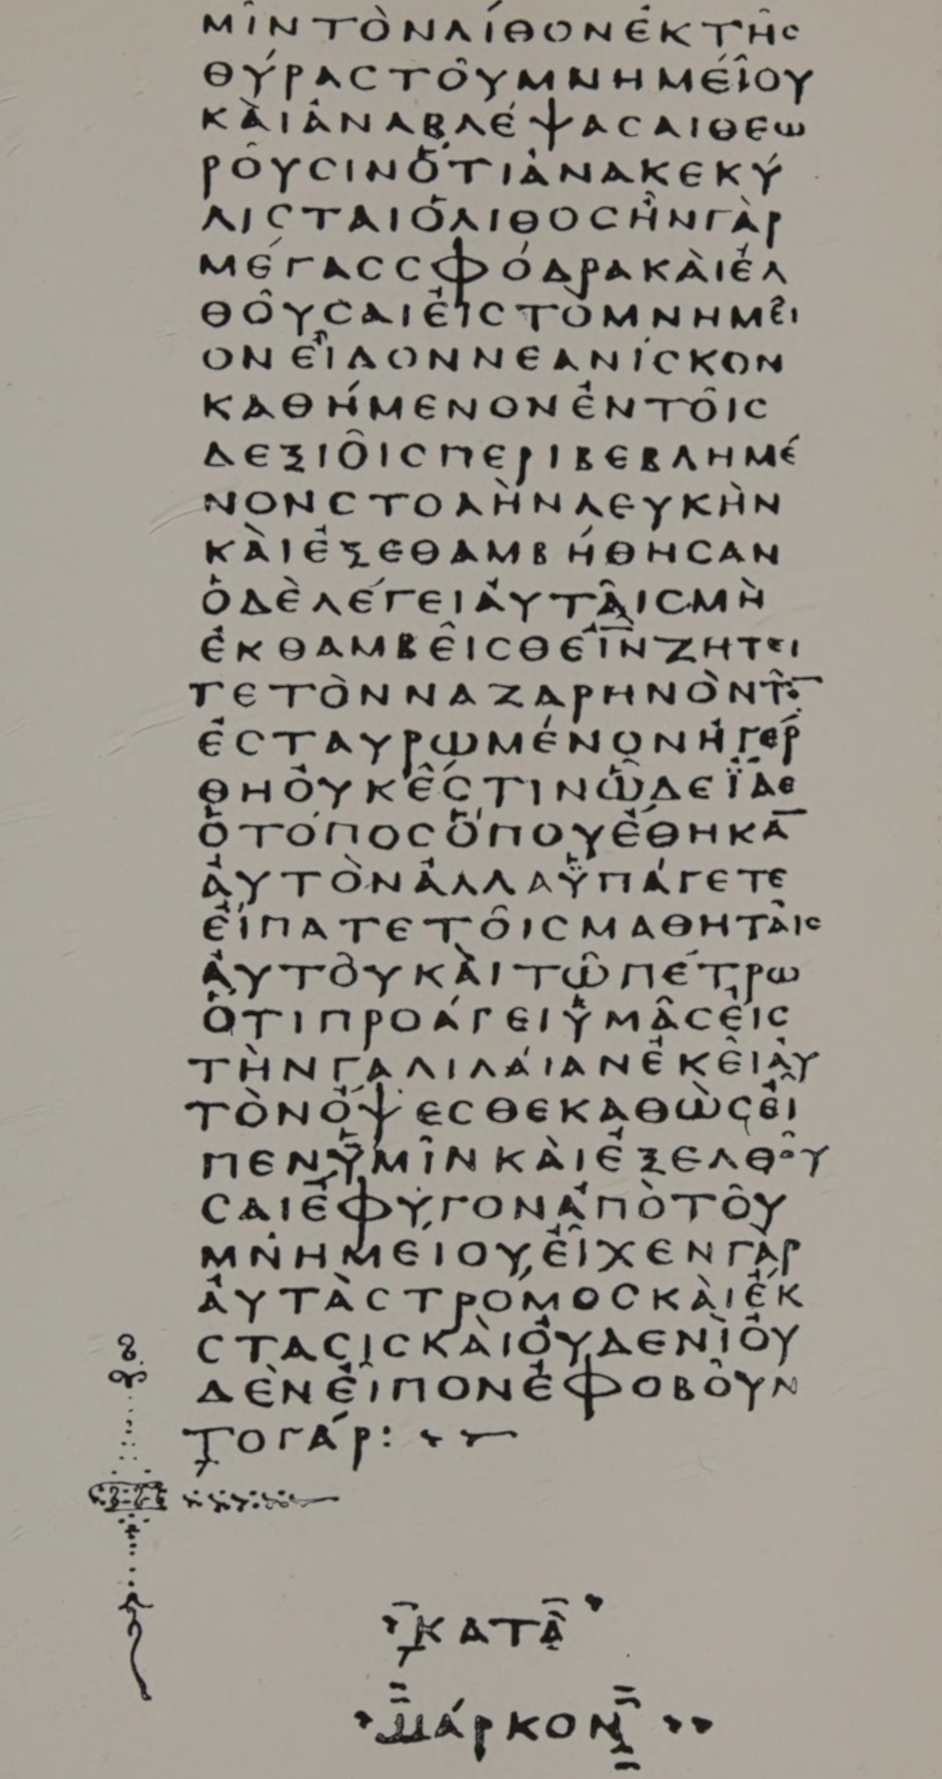 ΜῖΝΤὸΝΛίΘΟΝἐΚΤῆϹ
ΘύΡΑϹΤΟῦΜΝΗΜΕίΟΥ
ΚΑὶἀΝΑΒΛέΨΑϹΑΙΘΕΩ
ΡΟῦϹΙΝὅΤΙἀΝΑΚΕΚύ
ΛΙϹΤΑΙὁΛΙΘΟϹἦΝΓὰΡ
ΜέΓΑϹϹΦόΔΡΑΚΑὶἐΛ
ΘΟῦϹΑΙΕἰϹΤὸΜΝΗΜΕῖ
ΟΝΕἶΔΟΝΝΕΑΝίϹΚΟΝ
ΚΑΘήΜΕΝΟΝἐΝΤΟῖϹ
ΔΕΞΙΟῖϹΠΕΡΙΒΕΒΛΗΜέ
ΝΟΝϹΤΟΛὴΝΛΕΥΚὴΝ
ΚΑὶἐΞΕΘΑΜΒήΘΗϹΑΝ
ὁΔὲΛέΓΕΙΑὐΤΑῖϹΜὴ
ἐΚΘΑΜΒΕῖϹΘΕΙ̅Ν̅ΖΗΤΕΙ
ΤΕΤὸΝΝΑΖΑΡΗΝὸΝΤὸ̅
ἐϹΤΑΥΡΩΜέΝΟΝἠΓέΡ
ΘΗΟὐΚἔϹΤΙΝὧΔΕἴΔΕ
ὁΤόΠΟϹὅΠΟΥἔΘΗΚΑ̅
ΑὐΤὸΝἀΛΛΑὑΠάΓΕΤΕ
ΕἴΠΑΤΕΤΟῖϹΜΑΘΗΤΑῖϹ
ΑὐΤΟῦΚΑὶΤῶΠέΤΡΩ
ὅΤΙΠΡΟάΓΕΙὑΜᾶϹΕἰϹ
ΤὴΝΓΑΛΙΛΑίΑΝἐΚΕῖΑὐ
ΤὸΝὄΨΕϹΘΕΚΑΘὼϹΕἶ
ΠΕΝὑΜῖΝΚΑὶἐΞΕΛΘΟῦ
ϹΑΙἔΦΥΓΟΝἀΠὸΤΟῦ
ΜΝΗΜΕίΟΥ,ΕἶΧΕΝΓὰΡ
ΑὐΤὰϹΤΡόΜΟϹΚΑὶἔΚ
ϹΤΑϹΙϹΚΑὶΟὐΔΕΝὶΟὐ
ΔὲΝΕἶΠΟΝἐΦΟΒΟῦΝ
ΤΟΓάΡ:
ΚΑΤὰ
ΜάΡΚΟΝ